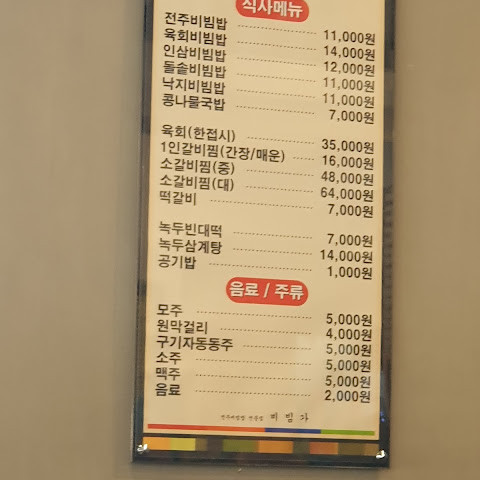 식사메뉴
전주비빔밥 11,000원
육회비빔밥 14,000원
인삼비빔밥 12,000원
돌솥비빔밥 11,000원
낙지비빔밥 11,000원
콩나물국밥 7,000원
육회(한접시) 35,000원
1인갈비찜(간장/매운) 16,000원
소갈비찜(중) 48,000원
소갈비찜(대) 64,000원
떡갈비 7,000원
녹두빈대떡 7,000원
녹두삼계탕 14,000원
공기밥 1,000원
음료 / 주류
모주 5,000원
원막걸리 4,000원
구기자동동주 5,000원
소주 5,000원
맥주 5,000원
음료 2,000원
전주비빔밥 전문점 비빔가